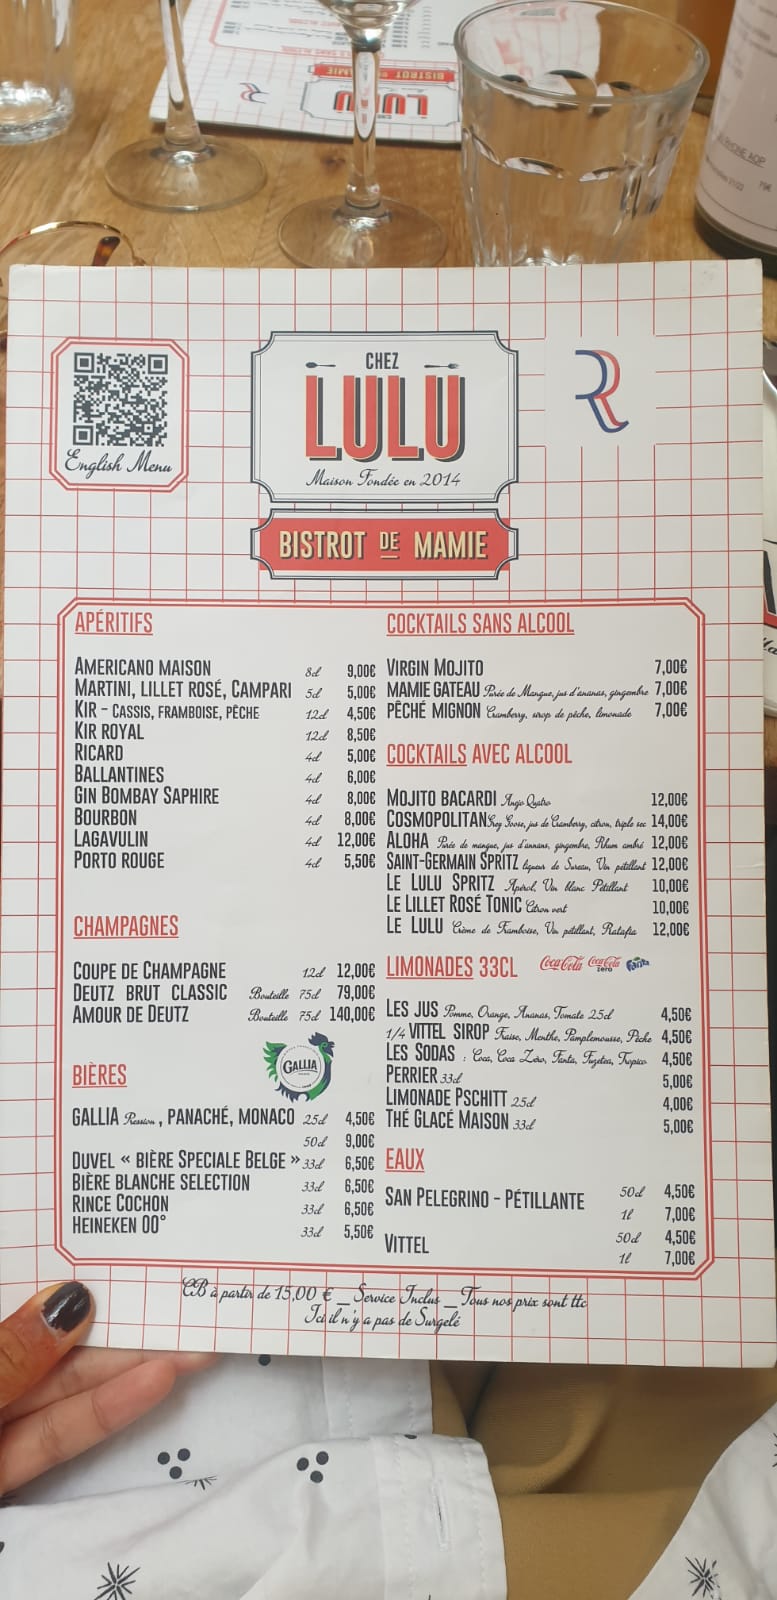 BISTROT DE MAMIE
LULU
RHONE AOP
CHEZ
LULU
Maison Fondée en 2014
English Menu
R
BISTROT DE MAMIE
APÉRITIFS
AMERICANO MAISON 8cl 9,00€
MARTINI, LILLET ROSÉ, CAMPARI 5cl 5,00€
KIR - CASSIS, FRAMBOISE, PÊCHE 12cl 4,50€
KIR ROYAL 12cl 8,50€
RICARD 4cl 5,00€
BALLANTINES 4cl 6,00€
GIN BOMBAY SAPHIRE 4cl 8,00€
BOURBON 4cl 8,00€
LAGAVULIN 4cl 12,00€
PORTO ROUGE 4cl 5,50€
CHAMPAGNES
COUPE DE CHAMPAGNE 12cl 12,00€
DEUTZ BRUT CLASSIC Bouteille 75cl 79,00€
AMOUR DE DEUTZ Bouteille 75cl 140,00€
BIÈRES
GALLIA
GALLIA Pression, PANACHÉ, MONACO 25cl 4,50€
50cl 9,00€
DUVEL « BIÈRE SPECIALE BELGE » 33cl 6,50€
BIÈRE BLANCHE SELECTION 33cl 6,50€
RINCE COCHON 33cl 6,50€
HEINEKEN 00° 33cl 5,50€
COCKTAILS SANS ALCOOL
VIRGIN MOJITO 7,00€
MAMIE GATEAU Purée de Mangue, jus d'ananas, gingembre 7,00€
PÊCHÉ MIGNON Cramberry, sirop de pêche, limonade 7,00€
COCKTAILS AVEC ALCOOL
MOJITO BACARDI Anejo Quatro 12,00€
COSMOPOLITAN Grey Goose, jus de Cramberry, citron, triple sec 14,00€
ALOHA Purée de mangue, jus d'annans, gingembre, Rhum ambré 12,00€
SAINT-GERMAIN SPRITZ liqueur de Sureau, Vin pétillant 12,00€
LE LULU SPRITZ Apérol, Vin blanc Pétillant 10,00€
LE LILLET ROSÉ TONIC Citron vert 10,00€
LE LULU Crème de Framboise, Vin pétillant, Ratafia 12,00€
LIMONADES 33CL Coca-Cola Coca-Cola zero Fanta
LES JUS Pomme, Orange, Ananas, Tomate 25cl 4,50€
1/4 VITTEL SIROP Fraise, Menthe, Pamplemousse, Pêche 4,50€
LES SODAS : Coca, Coca Zéro, Fanta, Fuzetea, Tropico 4,50€
PERRIER 33cl 5,00€
LIMONADE PSCHITT 25cl 4,00€
THÉ GLACÉ MAISON 33cl 5,00€
EAUX
SAN PELEGRINO - PÉTILLANTE 50cl 4,50€
1l 7,00€
VITTEL 50cl 4,50€
1l 7,00€
CB à partir de 15,00 € _ Service Inclus _ Tous nos prix sont ttc
Ici il n'y a pas de Surgelé